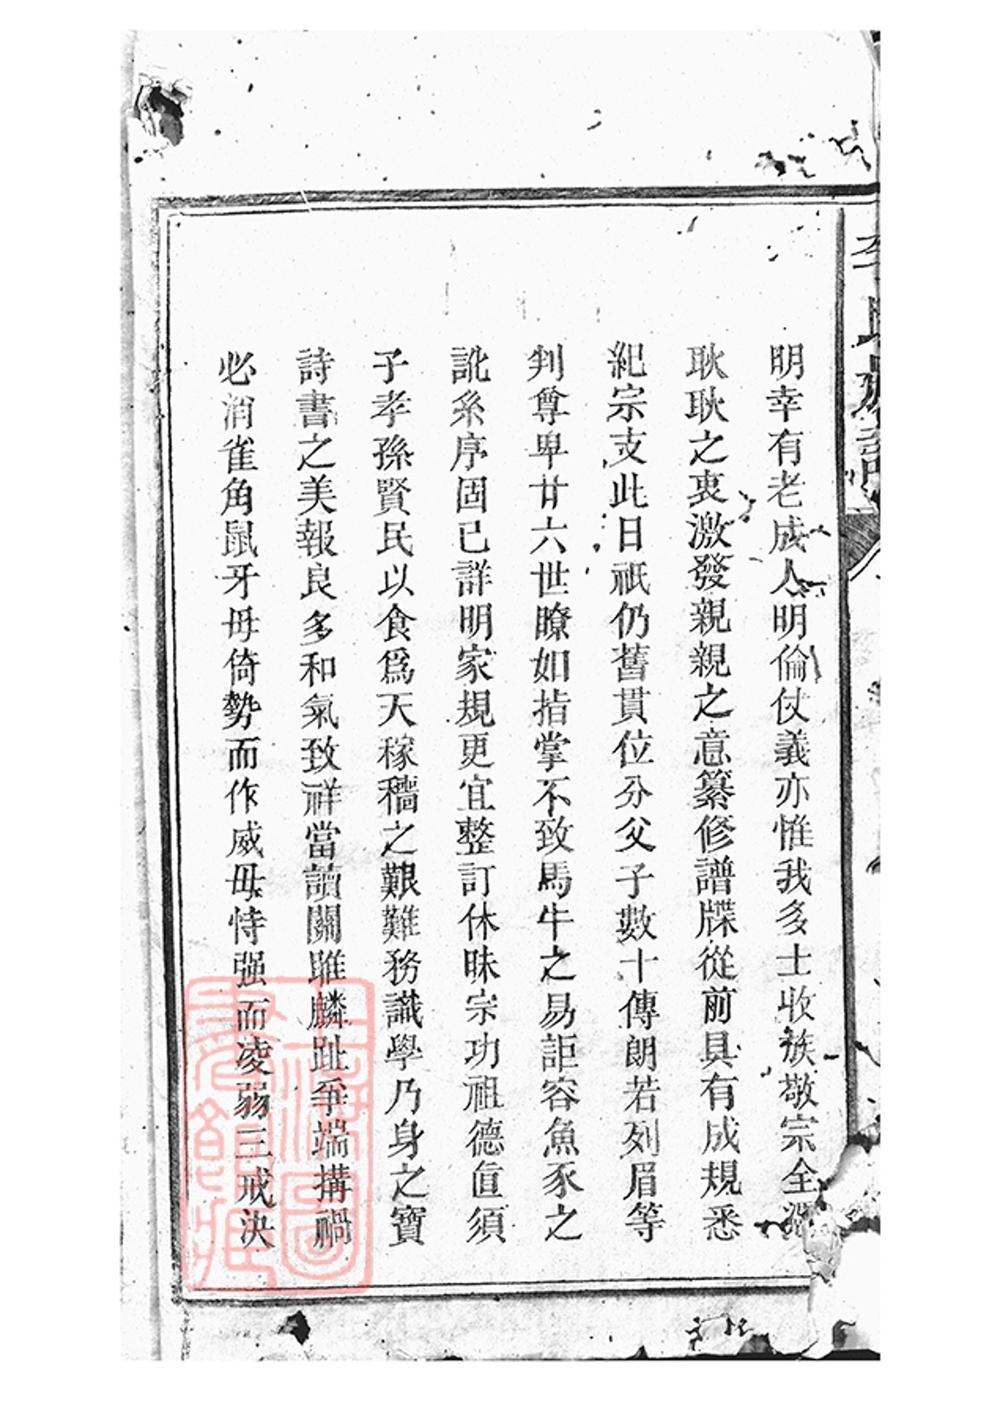 李氏族譜
明幸有老成人明倫仗義亦惟我多士收族敬宗全憑
耿耿之衷激發親親之意纂修譜牒從前具有成規悉
紀宗支此日祇仍舊貫位分父子數十傳朗若列眉等
判尊卑廿六世瞭如指掌不致馬牛之易詎容魚豕之
訛系序固已詳明家規更宜整訂休昧宗功祖德直須
子孝孫賢民以食爲天稼穡之艱難務識學乃身之寶
詩書之美報良多和氣致祥當讀關雎麟趾爭端搆禍
必消雀角鼠牙毋倚勢而作威毋恃强而凌弱三戒決
上海圖書館藏